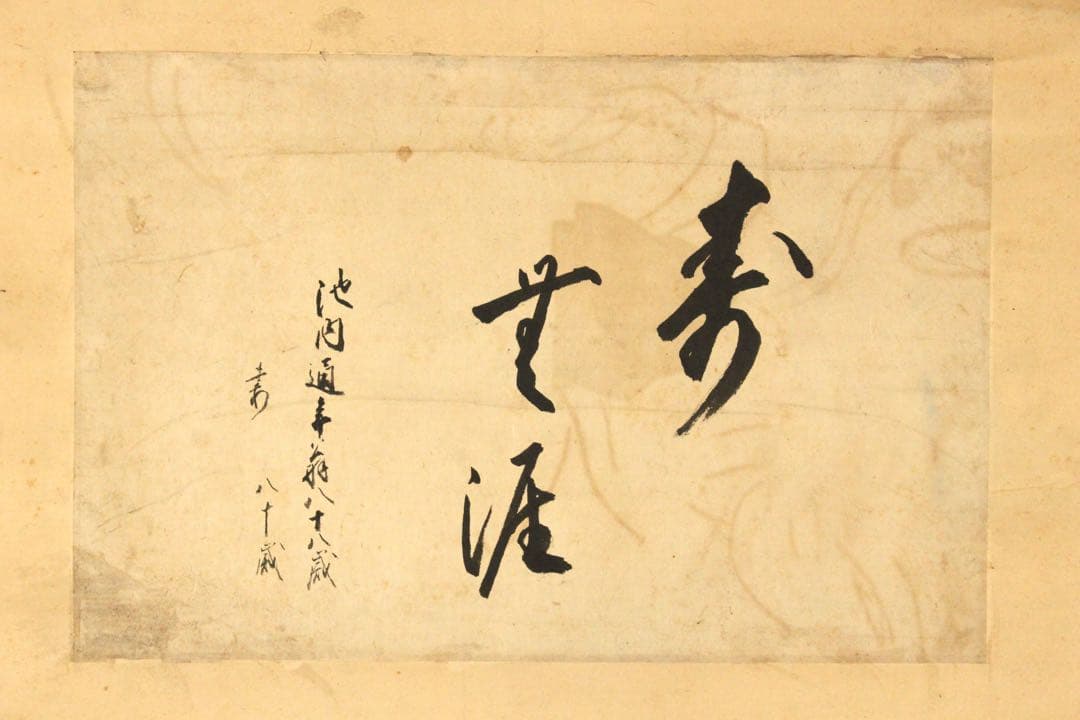 寿
無涯
池内通年翁八十八歳
寿 八十歳